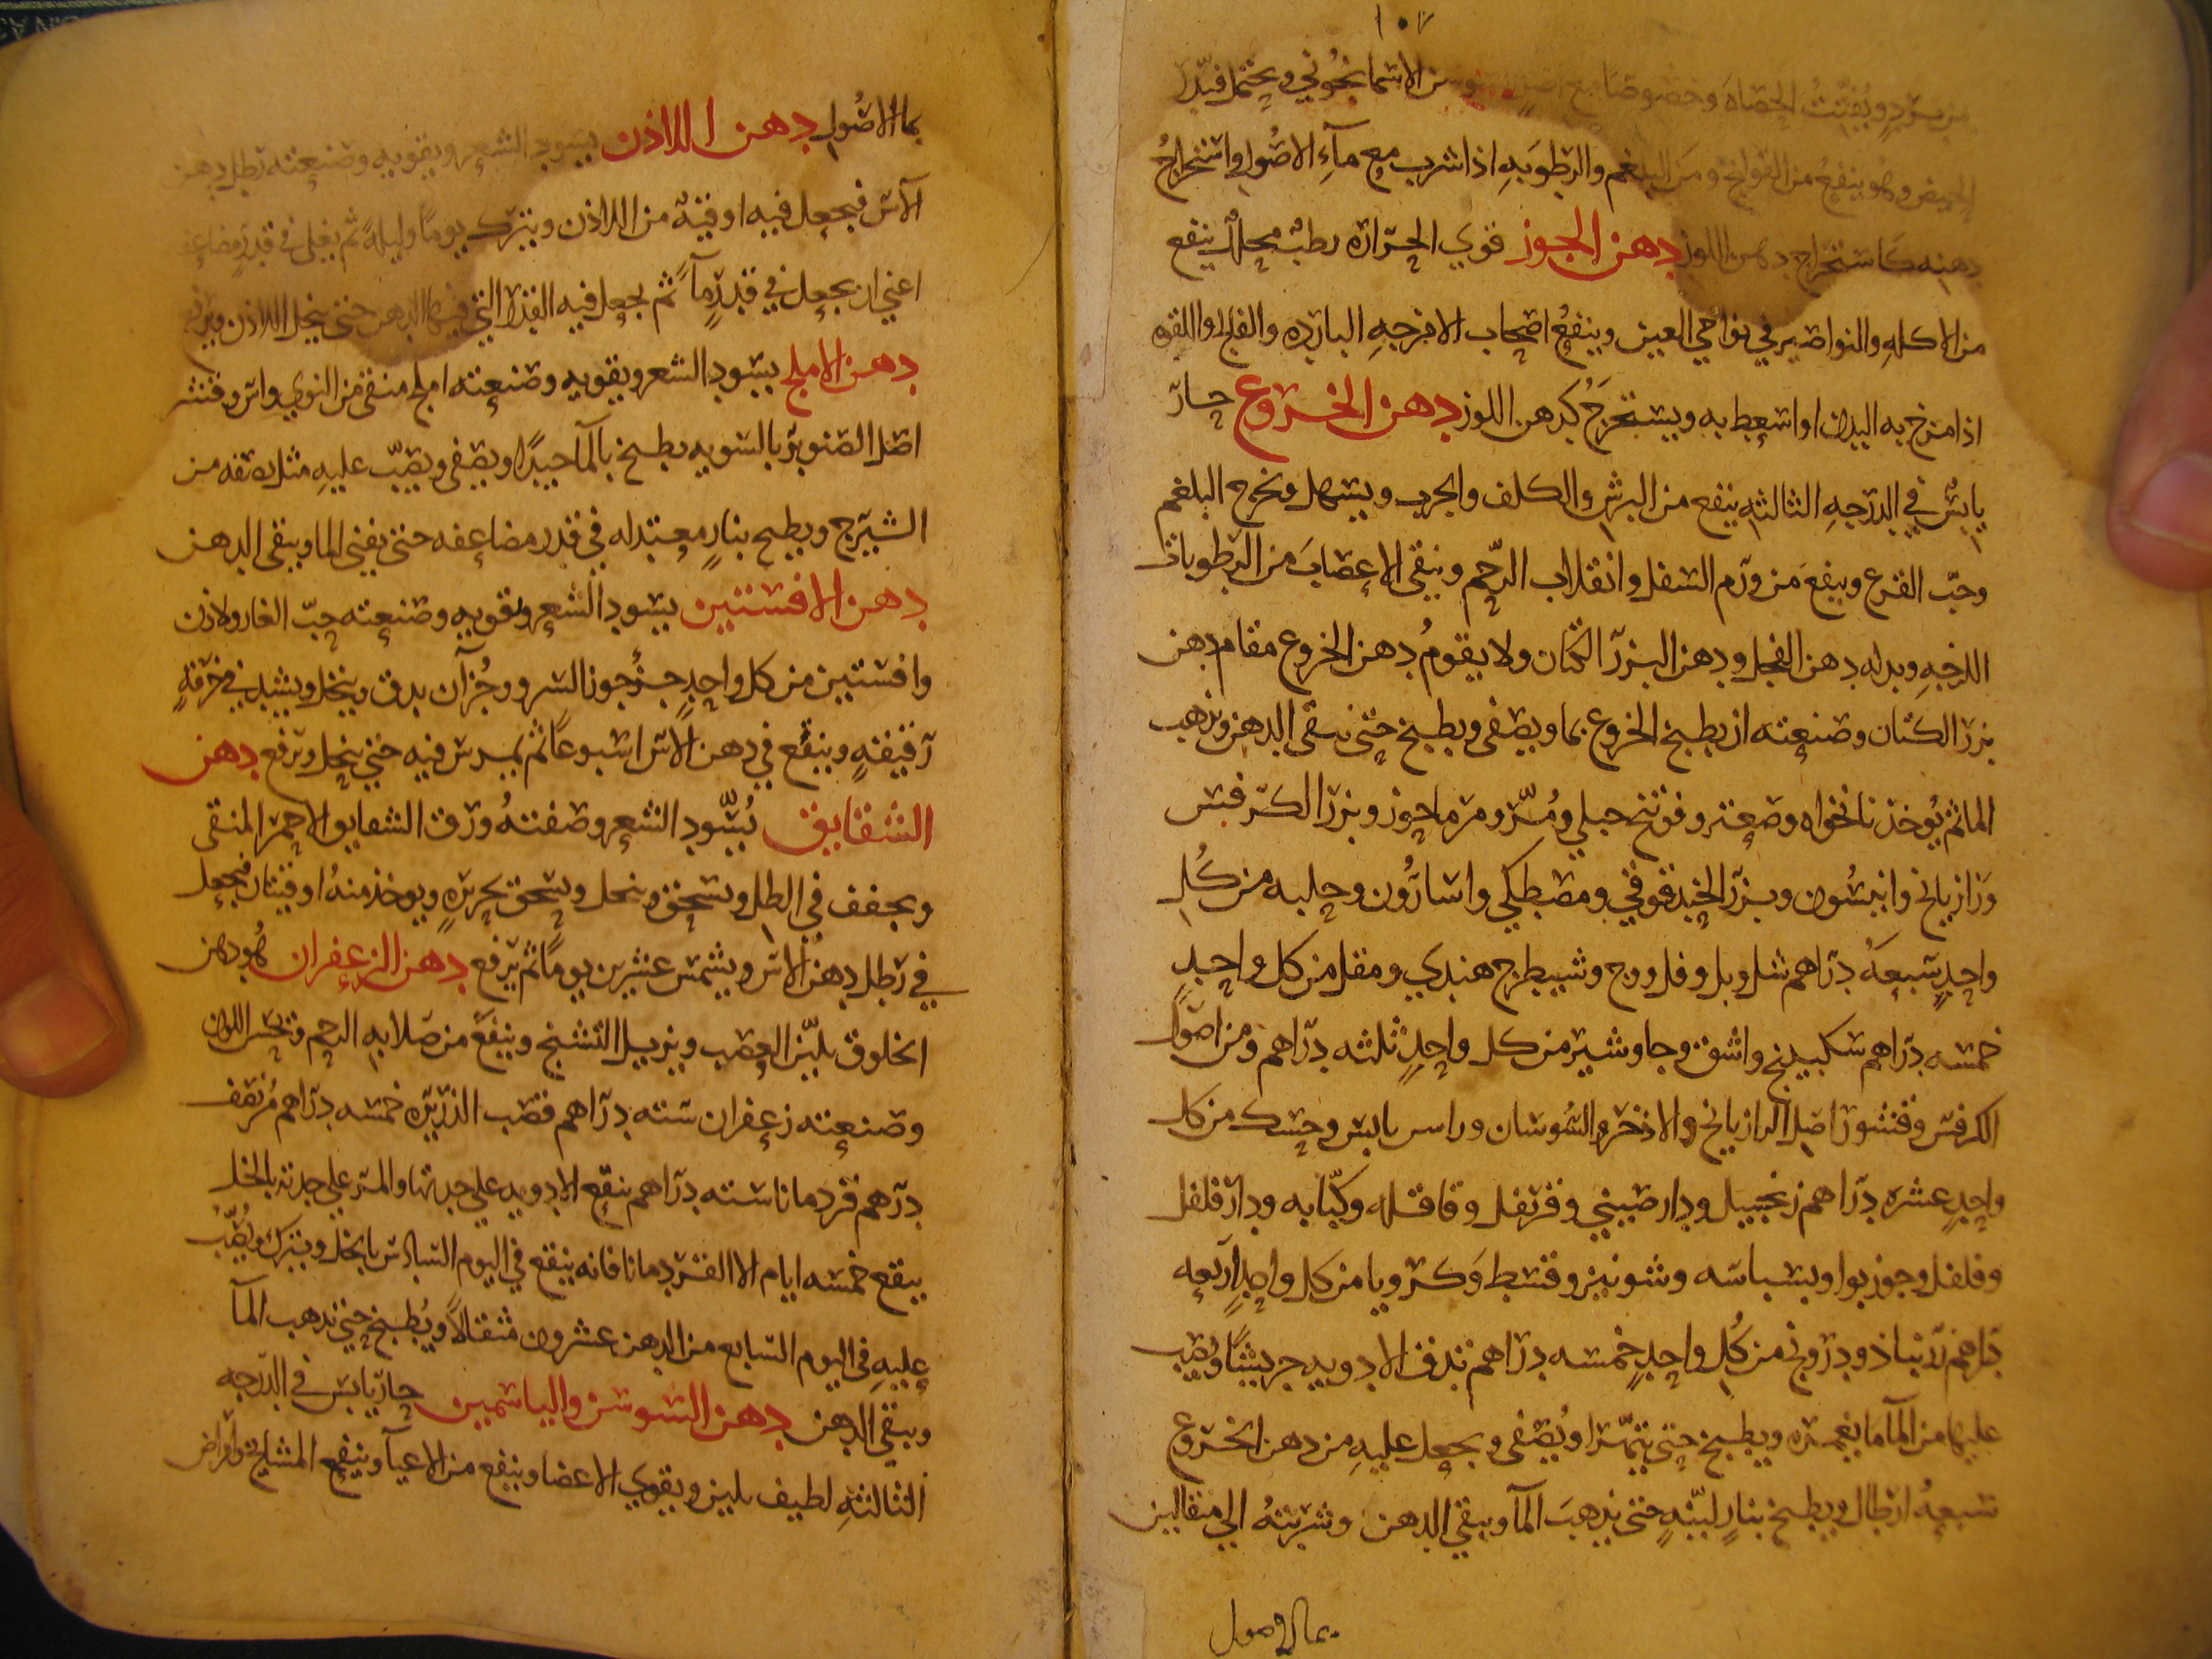 ١٠٧
من برد ويفتت الحصاه وخصوصا مع اصل سوسن الاسمانجوني ويحتمل فيدر
الحيض وهو ينفع من القولنج ومن البلغم والرطوبه اذا شرب مع مآء الاصول واستخراج
دهنه كاستخراج دهن اللوز دهن الجوز قوي الحراره رطب محلل ينفع
من الاكله والنواصير في نواحي العين وينفع اصحاب الامزجه البارده والفالج واللقوه
اذا مرخ به البدن او اسعط به ويستخرج كدهن اللوز دهن الخروع حار
يابس في الدرجه الثالثه ينفع من البرش والكلف والجرب ويسهل ويخرج البلغم
وحب القرع وينفع من ورم السفل وانقلاب الرحم وينقي الاعصاب من الرطوبات
اللزجه وبدله دهن الفجل ودهن البزر الكتان ولا يقوم دهن الخروع مقام دهن
بزر الكتان وصنعته ان يطبخ الخروع بما ويصفى ويطبخ حتى يبقى الدهن ويذهب
الما ثم يوخذ نانخواه وصعتر وفوتنج جبلي ومر ومرماحوز وبزر الكرفس
ورازيانج وانيسون وبزر الحندقوقي ومصطكي واسارون وحلبه من كل
واحد سبعه دراهم شل وبل وفل ووج وشيطرج هندي ومقل من كل واحد
خمسه دراهم سكبينج واشق وجاوشير من كل واحد ثلثه دراهم ومن اصول
الكرفس وقشور اصل الرازيانج والاذخر والسوسان وراسن يابس وحسك من كل
واحد عشره دراهم زنجبيل ودارصيني وقرنفل وقاقله وكبابه ودارفلفل
وفلفل وجوزبوا وبسباسه وشونيز وقسط وكرويا من كل واحد اربعه
دراهم زرنباد ودرونج من كل واحد خمسه دراهم تدق الادويه جريشا ويصب
عليها من المآ ما يغمره ويطبخ حتى يتهرا ويصفى ويجعل عليه من دهن الخروع
سبعه ارطال ويطبخ بنار لينه حتى يذهب المآ ويبقى الدهن وشربته الى مثقالين
بما الاصول
بما الاصول دهن اللاذن يسود الشعر ويقويه وصنعته رطل دهن
الآس فيجعل فيه اوقيه من اللاذن ويترك يوما وليله ثم يغلى في قدر مضاعفه
اعني ان يجعل في قدر مآ ثم يجعل فيه القدر التي فيها الدهن حتى ينحل اللاذن ويرفع
دهن الاملج يسود الشعر ويقويه وصنعته املج منقى من النوي واس وقشر
اصل الصنوبر بالسويه يطبخ بالمآ جيدا ويصفى ويصب عليه مثل نصفه من
الشيرج ويطبخ بنار معتدله في قدر مضاعفه حتى يفنى الما ويبقى الدهن
دهن الافسنتين يسود الشعر ويقويه وصنعته حب الغار ولاذن
وافسنتين من كل واحد جزؤ جوز السرو جزآن يدق وينخل ويشد في خرقة
رقيقة وينقع في دهن الاس اسبوعا ثم يمرس فيه حتى ينحل ويرفع دهن
الشقايق يسود الشعر وصفته ورق الشقايق الاحمر المنقى
ويجفف في الظل ويسحق وينخل ويسحق بحريره ويوخذ منه اوقيتان فيجعل
في رطل دهن الاس ويشمس عشرين يوما ثم يرفع دهن الزعفران هو دهن
الخلوق يلين العصب ويزيل التشنج وينفع من صلابه الرحم ويحسن اللون
وصنعته زعفران سته دراهم قصب الذريره خمسه دراهم مر نصف
درهم قردمانا سته دراهم ينقع الادويه على حدتها والمر على حدته بالخل
ينقع خمسه ايام الا القردمانا فانه ينقع في اليوم السادس بالخل ويترك ويصب
عليه في اليوم السابع من الدهن عشرون مثقالا ويطبخ حتى تذهب المآ
ويبقى الدهن دهن السوسن والياسمين حار يابس في الدرجه
الثالثه لطيف يلين ويقوي الاعضا وينفع من الاعيآ وينفع المشايخ وامراض